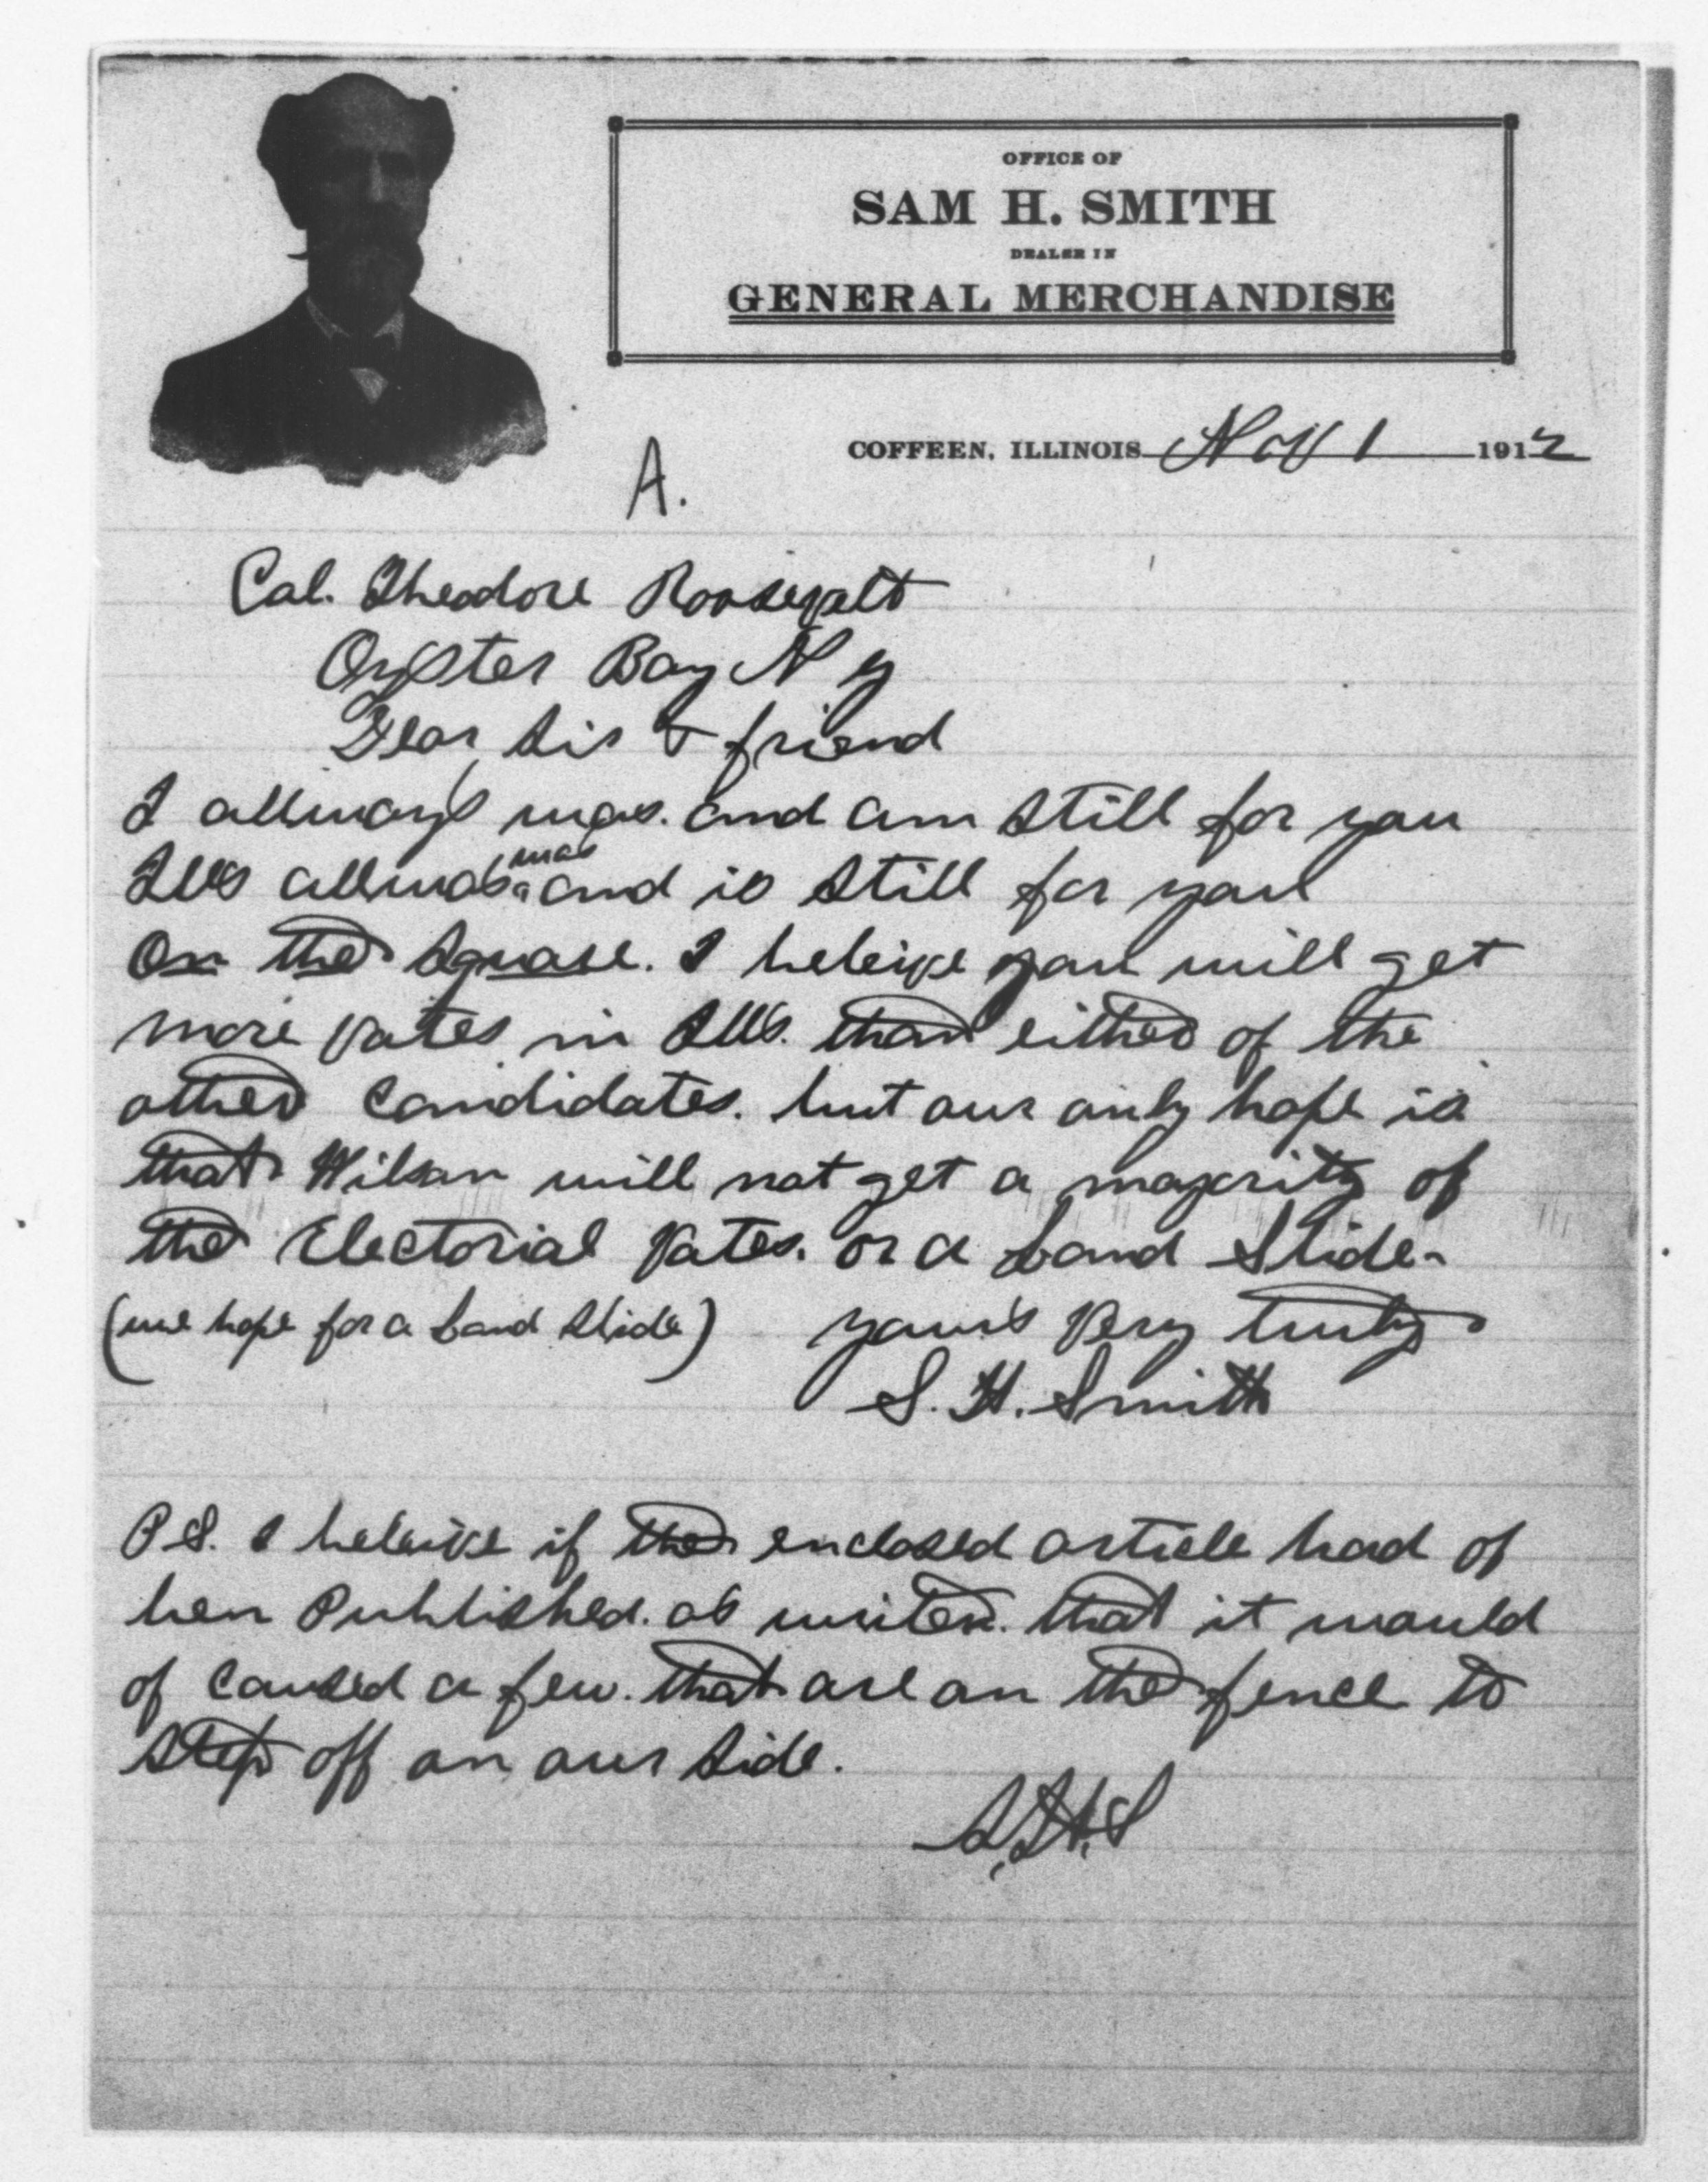 OFFICE OF
SAM H. SMITH
DEALER IN
GENERAL MERCHANDISE
COFFEEN, ILLINOIS Nov 1 1912
A.
Col. Theodore Roosevelt
Oyster Bay N Y
Dear Sir & friend
I allways was. and am still for you
Ills allwas was and is still for you
On the Square. I beleive you will get
more votes in Ills. than either of the
other Candidates. but our only hope is
that Wilson will not get a majority of
the Electorial Votes. or a Land Slide.
(we hope for a Land Slide) your's Very truly
S. H. Smith
P S. I beleive if the enclosed article had of
ben Published. as writen. that it would
of caused a few. that are on the fence to
step off on our side.
S.H.S